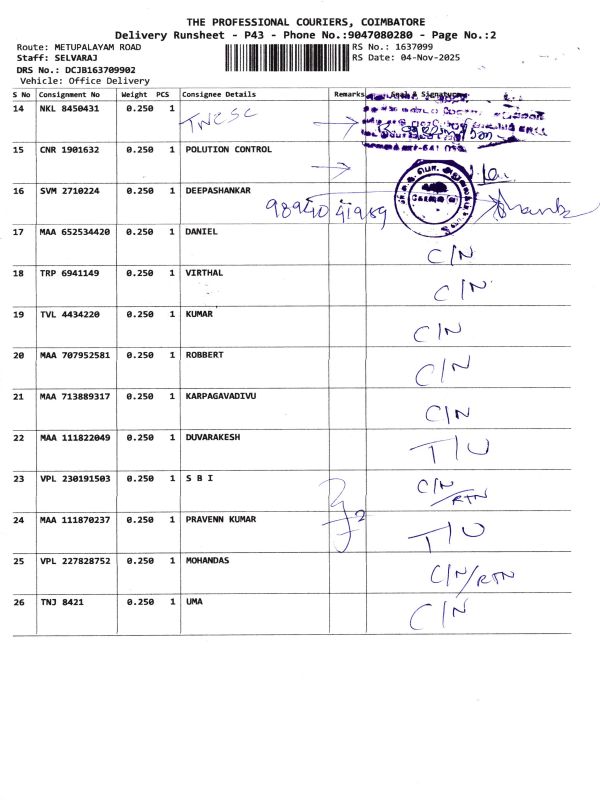 THE PROFESSIONAL COURIERS, COIMBATORE
Delivery Runsheet - P43 - Phone No.:9047080280 - Page No.:2
Route: METUPALAYAM ROAD RS No.: 1637099
Staff: SELVARAJ RS Date: 04-Nov-2025
DRS No.: DCJB163709902
Vehicle: Office Delivery
S No Consignment No Weight PCS Consignee Details Remarks Seal & Signature
14 NKL 8450431 0.250 1 TNCSC
15 CNR 1901632 0.250 1 POLUTION CONTROL
16 SVM 2710224 0.250 1 DEEPASHANKAR
98940 41989
17 MAA 652534420 0.250 1 DANIEL C/N
18 TRP 6941149 0.250 1 VIRTHAL C/N
19 TVL 4434220 0.250 1 KUMAR C/N
20 MAA 707952581 0.250 1 ROBBERT C/N
21 MAA 713889317 0.250 1 KARPAGAVADIVU C/N
22 MAA 111822049 0.250 1 DUVARAKESH T/U
23 VPL 230191503 0.250 1 S B I C/N/RTN
24 MAA 111870237 0.250 1 PRAVENN KUMAR T/U
25 VPL 227828752 0.250 1 MOHANDAS C/N/RTN
26 TNJ 8421 0.250 1 UMA C/N